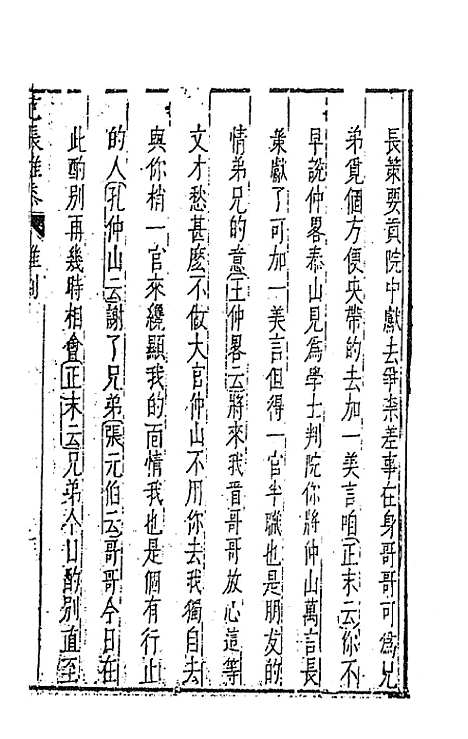 長策要貢院中獻去爭柰差事在身哥哥可爲兄
弟覓個方便央帶的去加一美言咱正末云你不
早說仲畧泰山見爲學士判院你將仲山萬言長
策獻了可加一美言但得一官半職也是朋友的
情弟兄的意王仲畧云將來我晋哥哥放心這等
文才愁甚麽不做大官仲山不用你去我獨自去
與你稍一官來纔顯我的面情我也是個有行止
的人孔仲山云謝了兄弟張元伯云哥哥今日在
此酌別再幾時相會正末云兄弟今日酌別直至
范張雞黍 雜劇